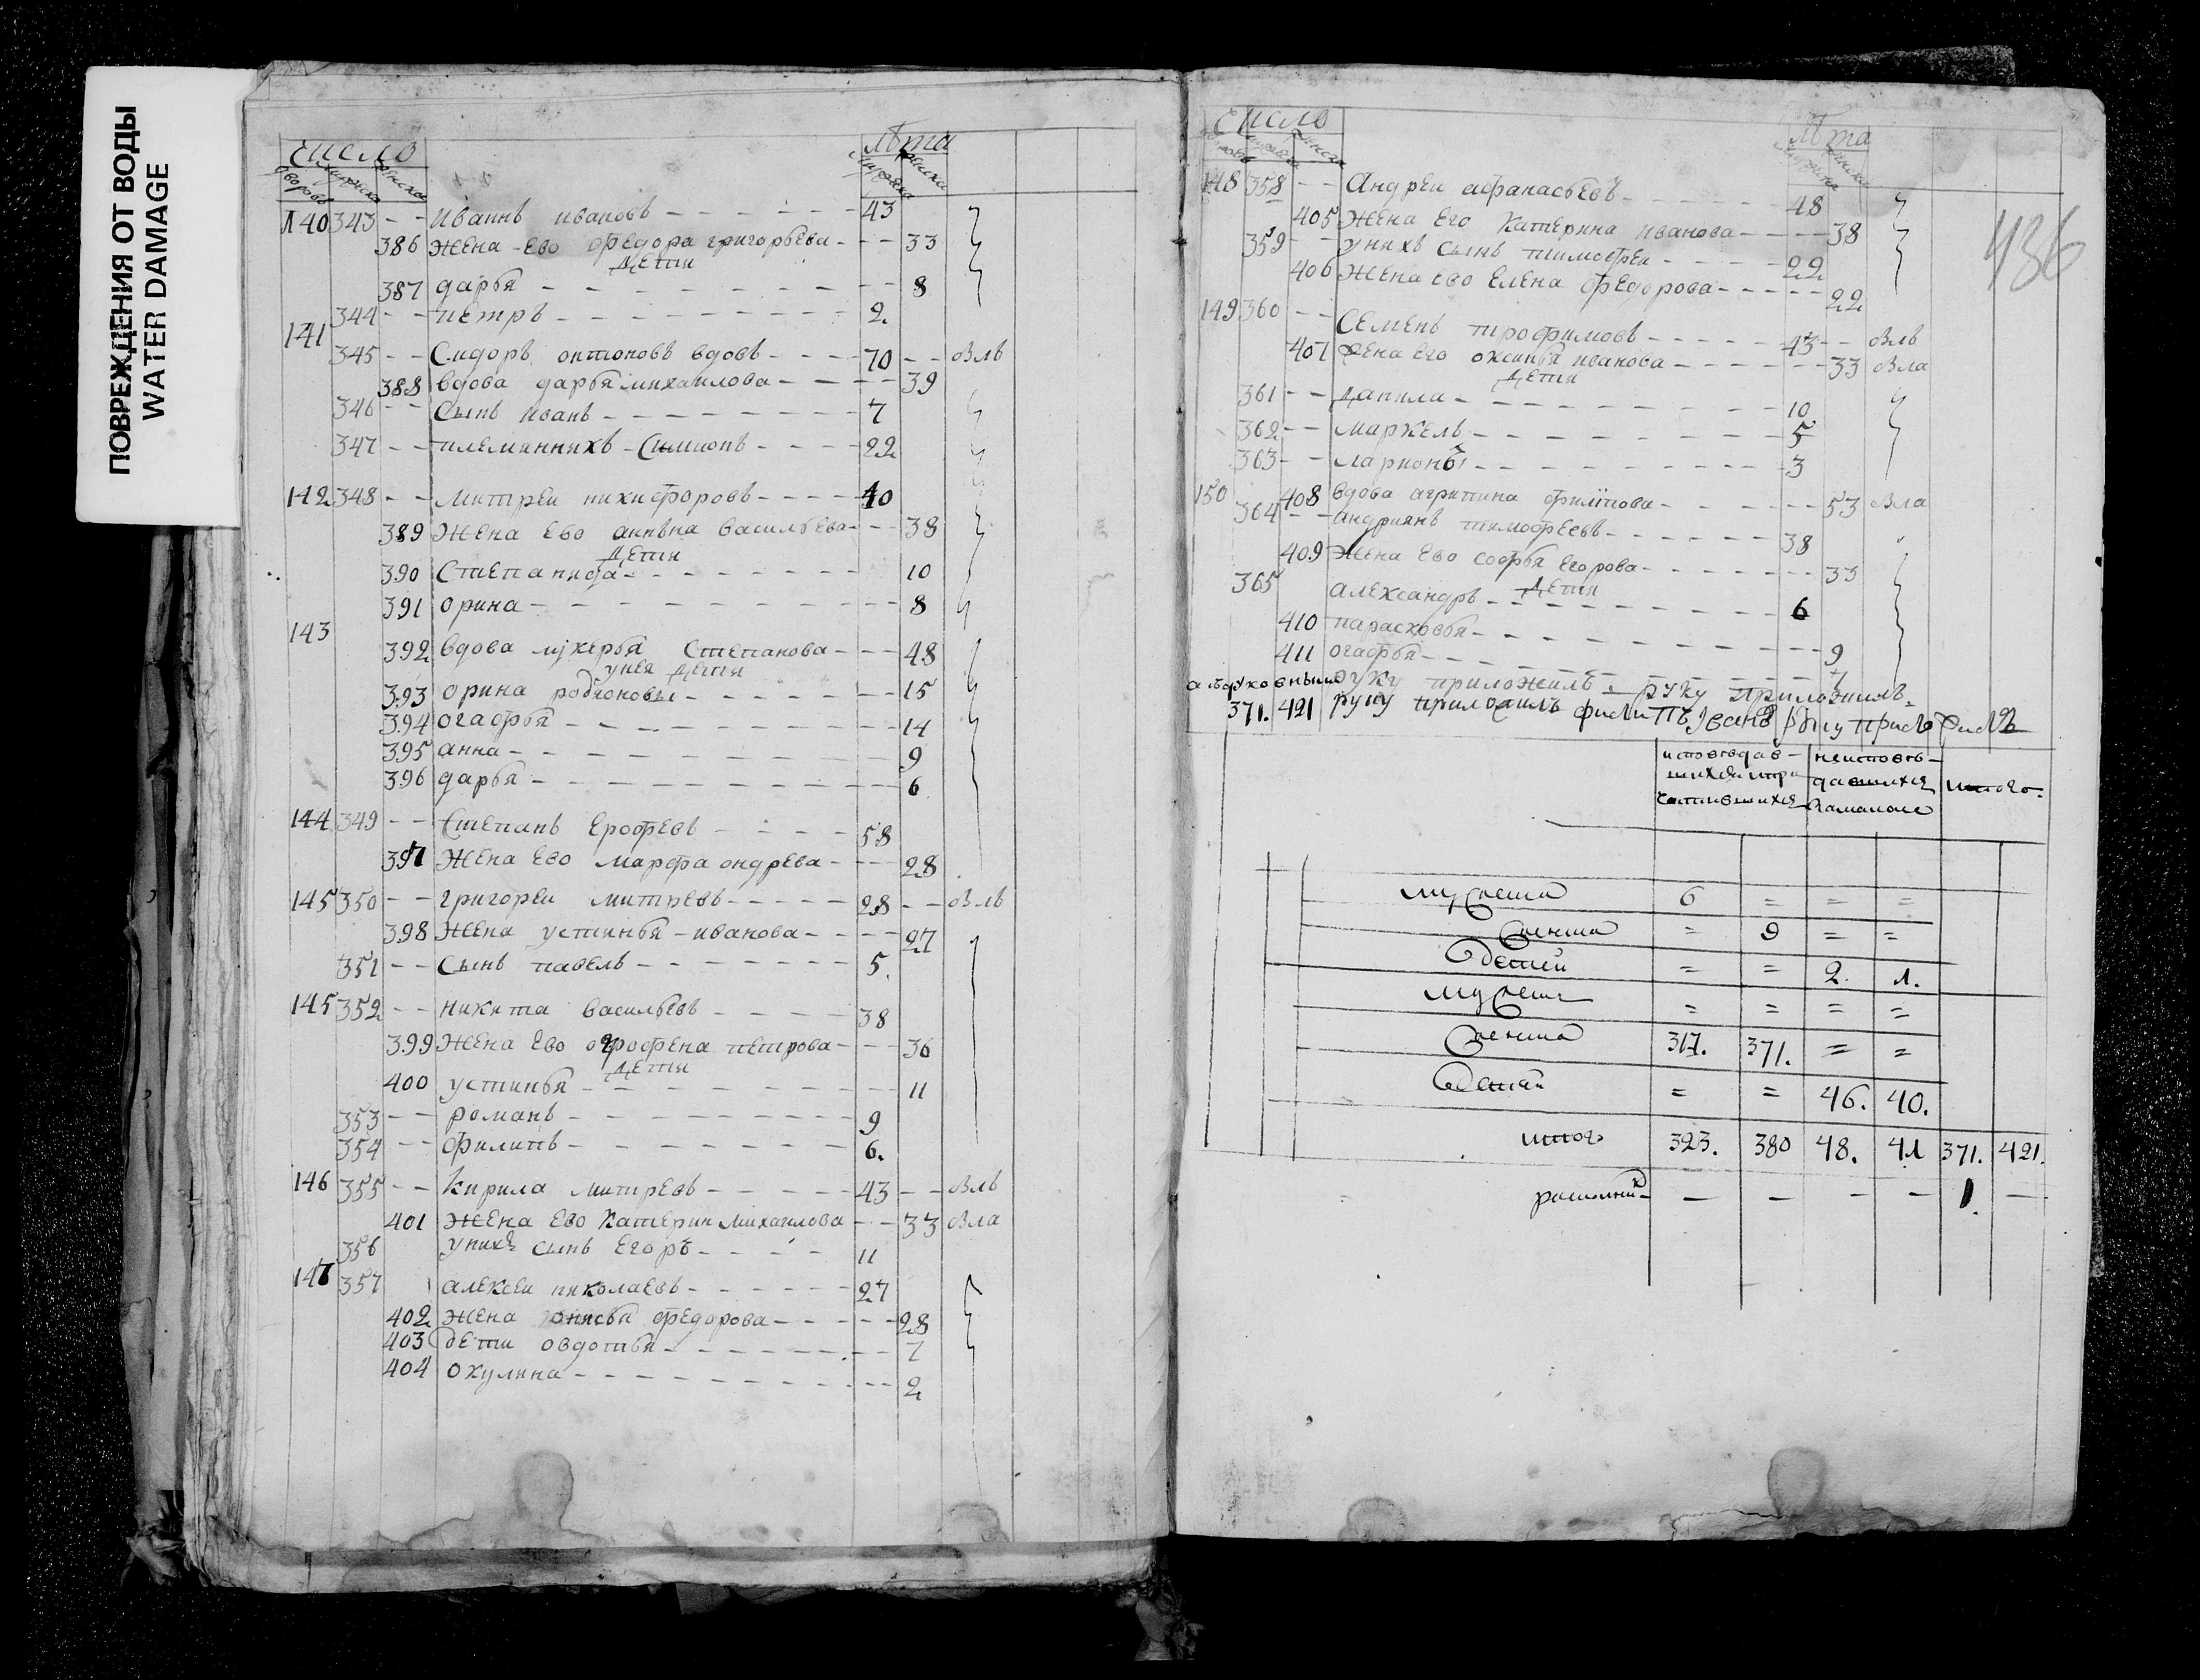 ПОВРЕЖДЕНИЯ ОТ ВОДЫ
WATER DAMAGE
число лѣта
140 343 - - иванъ ивановъ - - - 43
386 жена ево федора григорьева - - - 33
дети
387 дарья - - - 8
344 - - петръ - - - 2
141
345 - - Сидоръ онтоновъ вдовъ - - - 70 - - овль
388 вдова дарья михаилова - - - 39
346 - - сынъ иванъ - - - 7
347 - - племянникъ Симионъ - - - 22
142 348 - - митреи никифоровъ - - - 40
389 жена ево анна васильева - - - 38
дети
390 Степанида - - - 10
391 орина - - - 8
143
392 вдова лукерья Степанова - - - 48
у нея дети
393 орина родионовы - - - 15
394 огафья - - - 14
395 анна - - - 9
396 дарья - - - 6
144 349 - - Степанъ Ерофѣевъ - - - 58
397 жена ево марфа ондрева - - - 28
145 350 - - григореи митревъ - - - 28 - - овль
398 жена устинья иванова - - - 27
351 - - Сынъ павелъ - - - 5.
145 352 - - никита васильевъ - - - 38
399 жена ево огрофена петрова - - - 36
дети
400 устинья - - - 11
353 - - романъ - - - 9
354 - - филипъ - - - 6.
146 355 - - кирила митревъ - - - 43 - - овль
401 жена ево катерин михаилова - - 33 овла
356 у нихъ сынъ Егоръ - - - 11
147 357 алексеи николаевъ - - - 27
402 жена онисья федорова - - - 28
403 дети овдотья - - - 7
404 окулина - - - 2
число лѣта
436
148 358 - - Андреи афанасьевъ - - - 48
405 жена Его катерина иванова - - - 38
359 - - у нихъ сынъ тимофеи - - - 22
406 жена ево Елена федорова - - - 22
149 360 - - Семенъ трофимовъ - - - 43 - - овль
407 жена Его оксинья иванова - - - 33 овла
дети
361 - - Данила - - - 10
362 - - маркелъ - - - 5
363 - - ларионъ - - - 3
150 408 вдова агрипина филипова - - - 53 овла
364 - - андриянъ тимофеевъ - - - 38
409 жена ево софья Егорова - - - 33
дети
365 александръ - - - 6
410 парасковья - - - 9
411 огафья - - - 7
руку приложилъ руку приложилъ
371. 421 руку приложилъ филипъ Іванъ
исповѣдав- неисповѣ- итого.
шихся и при- давшихся
частившихся за малол
мужеска 6 = = =
женска = 9 = =
детей = = 2. 1.
мужеск = = = =
женска 317. 371. = =
детей = = 46. 40.
итого 323. 380 48. 41 371. 421.
— — — — 1. —